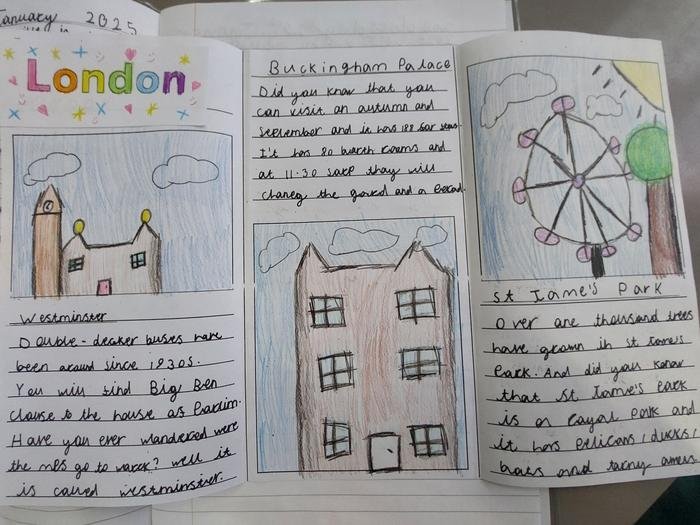 January 2025
London
Westminster
Double-decker buses have
been around since 1930s.
You will find Big Ben
clause to the house as Parlim.
Have you ever wandered were
the mps go to warck? well it
is called westminster.
Buckingham Palace
Did you know that you
can visit an autumn and
September and it has 188 Sar
It's has 80 barth rooms and
at 11.30 sarp they will
chaneg the gourd and a
St Jame's Park
Over are thousand trees
have grown in st Jame's
Park. And did you know
that St Jame's Park
is a Royal Park and
it has Pelicans / ducks /
bats and